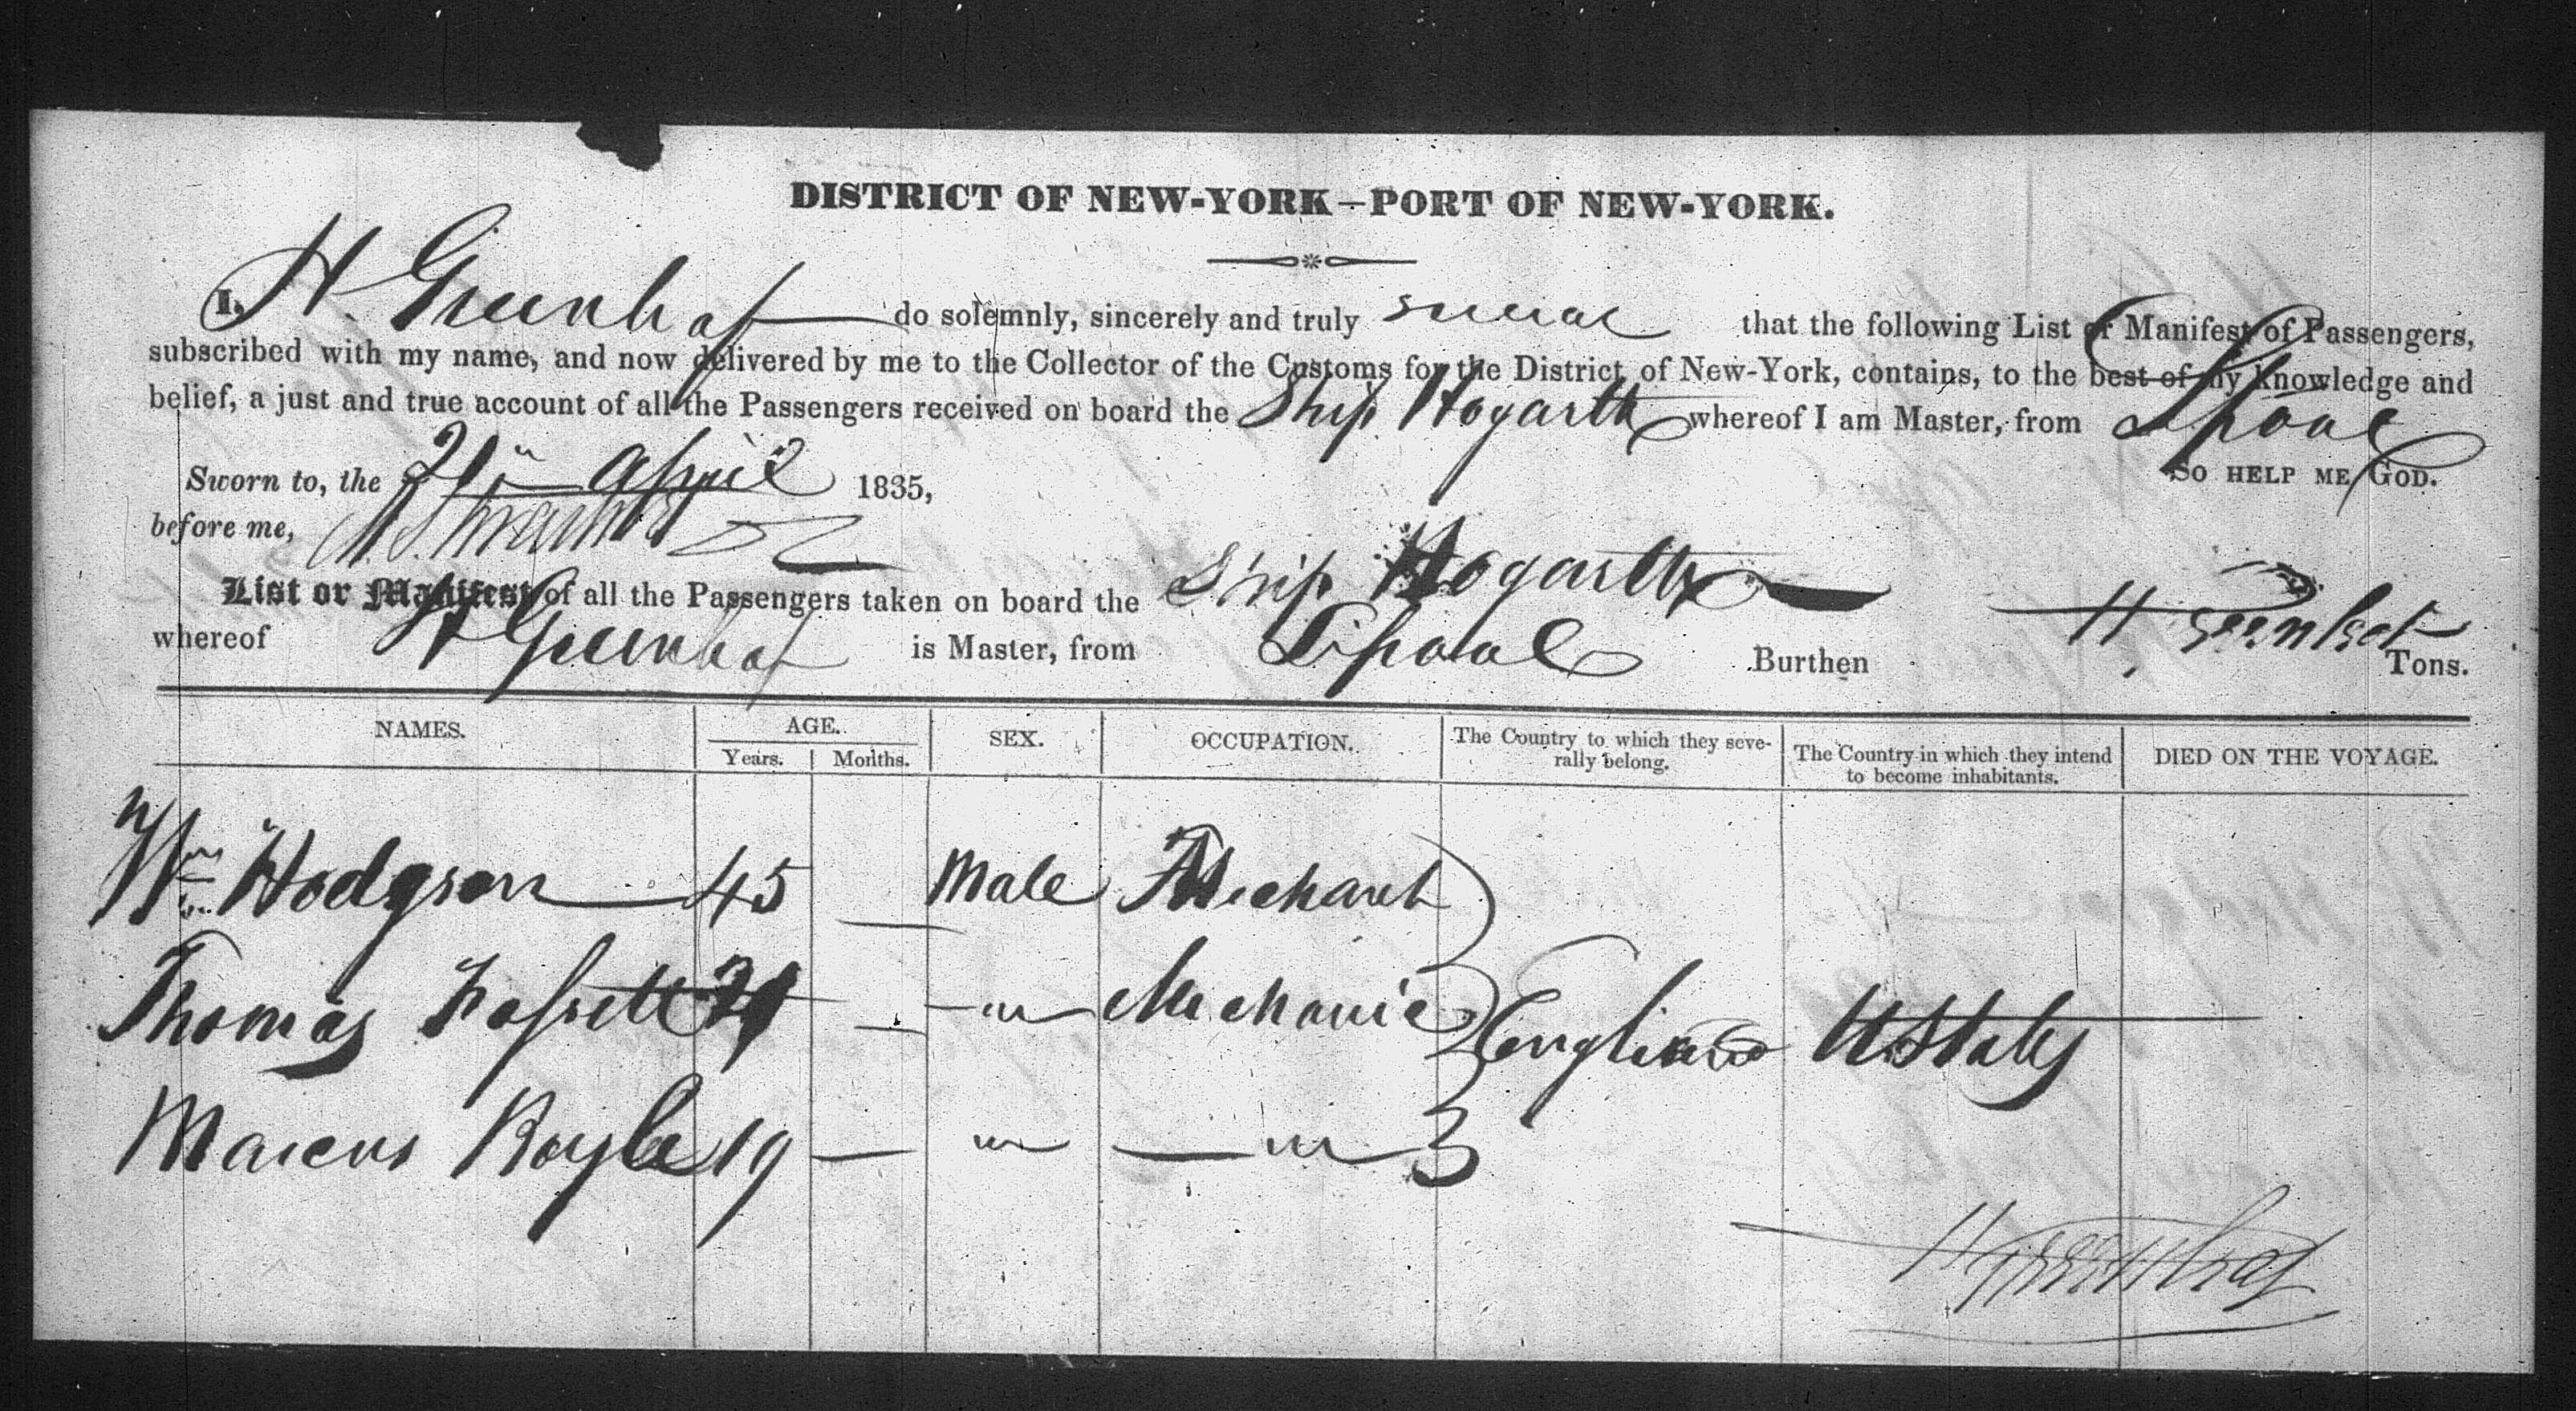 DISTRICT OF NEW-YORK—PORT OF NEW-YORK.
I, H. Greenhaf do solemnly, sincerely and truly swear that the following List or Manifest of Passengers,
subscribed with my name, and now delivered by me to the Collector of the Customs for the District of New-York, contains, to the best of my knowledge and
belief, a just and true account of all the Passengers received on board the Ship Hogarth whereof I am Master, from Lpool
Sworn to, the 21 April 1835, SO HELP ME GOD.
before me,
List or Manifest of all the Passengers taken on board the Ship Hogarth
whereof H Greenhaf is Master, from Lpool Burthen Tons.
NAMES. AGE. SEX. OCCUPATION. The Country to which they severally belong. The Country in which they intend to become inhabitants. DIED ON THE VOYAGE.
Years. Months.
Wm Hodgson 45 — Male Merchant
Thomas 21 — " Mechanic England U States
Marcus Royle 19 — " — "